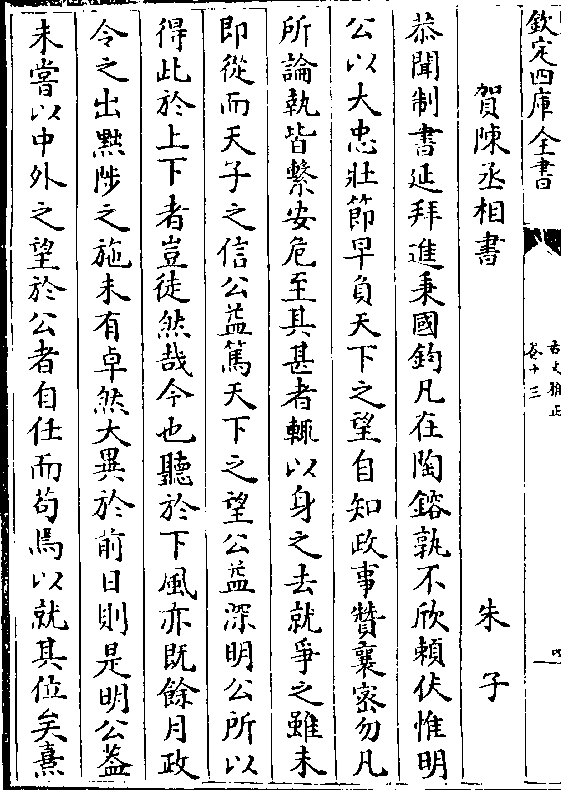 欽定四庫全書
古文雅正
卷十三
賀陳丞相書
朱子
恭聞制書延拜進秉國鈞凡在陶鎔孰不欣賴伏惟明
公以大忠壯節早負天下之望自知政事贊襄密勿凡
所論執皆繫安危至其甚者輒以身之去就爭之雖未
即從而天子之信公益篤天下之望公益深明公所以
得此於上下者豈徒然哉今也聽於下風亦既餘月政
令之出黜陟之施未有卓然大異於前日則是明公蓋
未嘗以中外之望於公者自任而苟焉以就其位矣熹